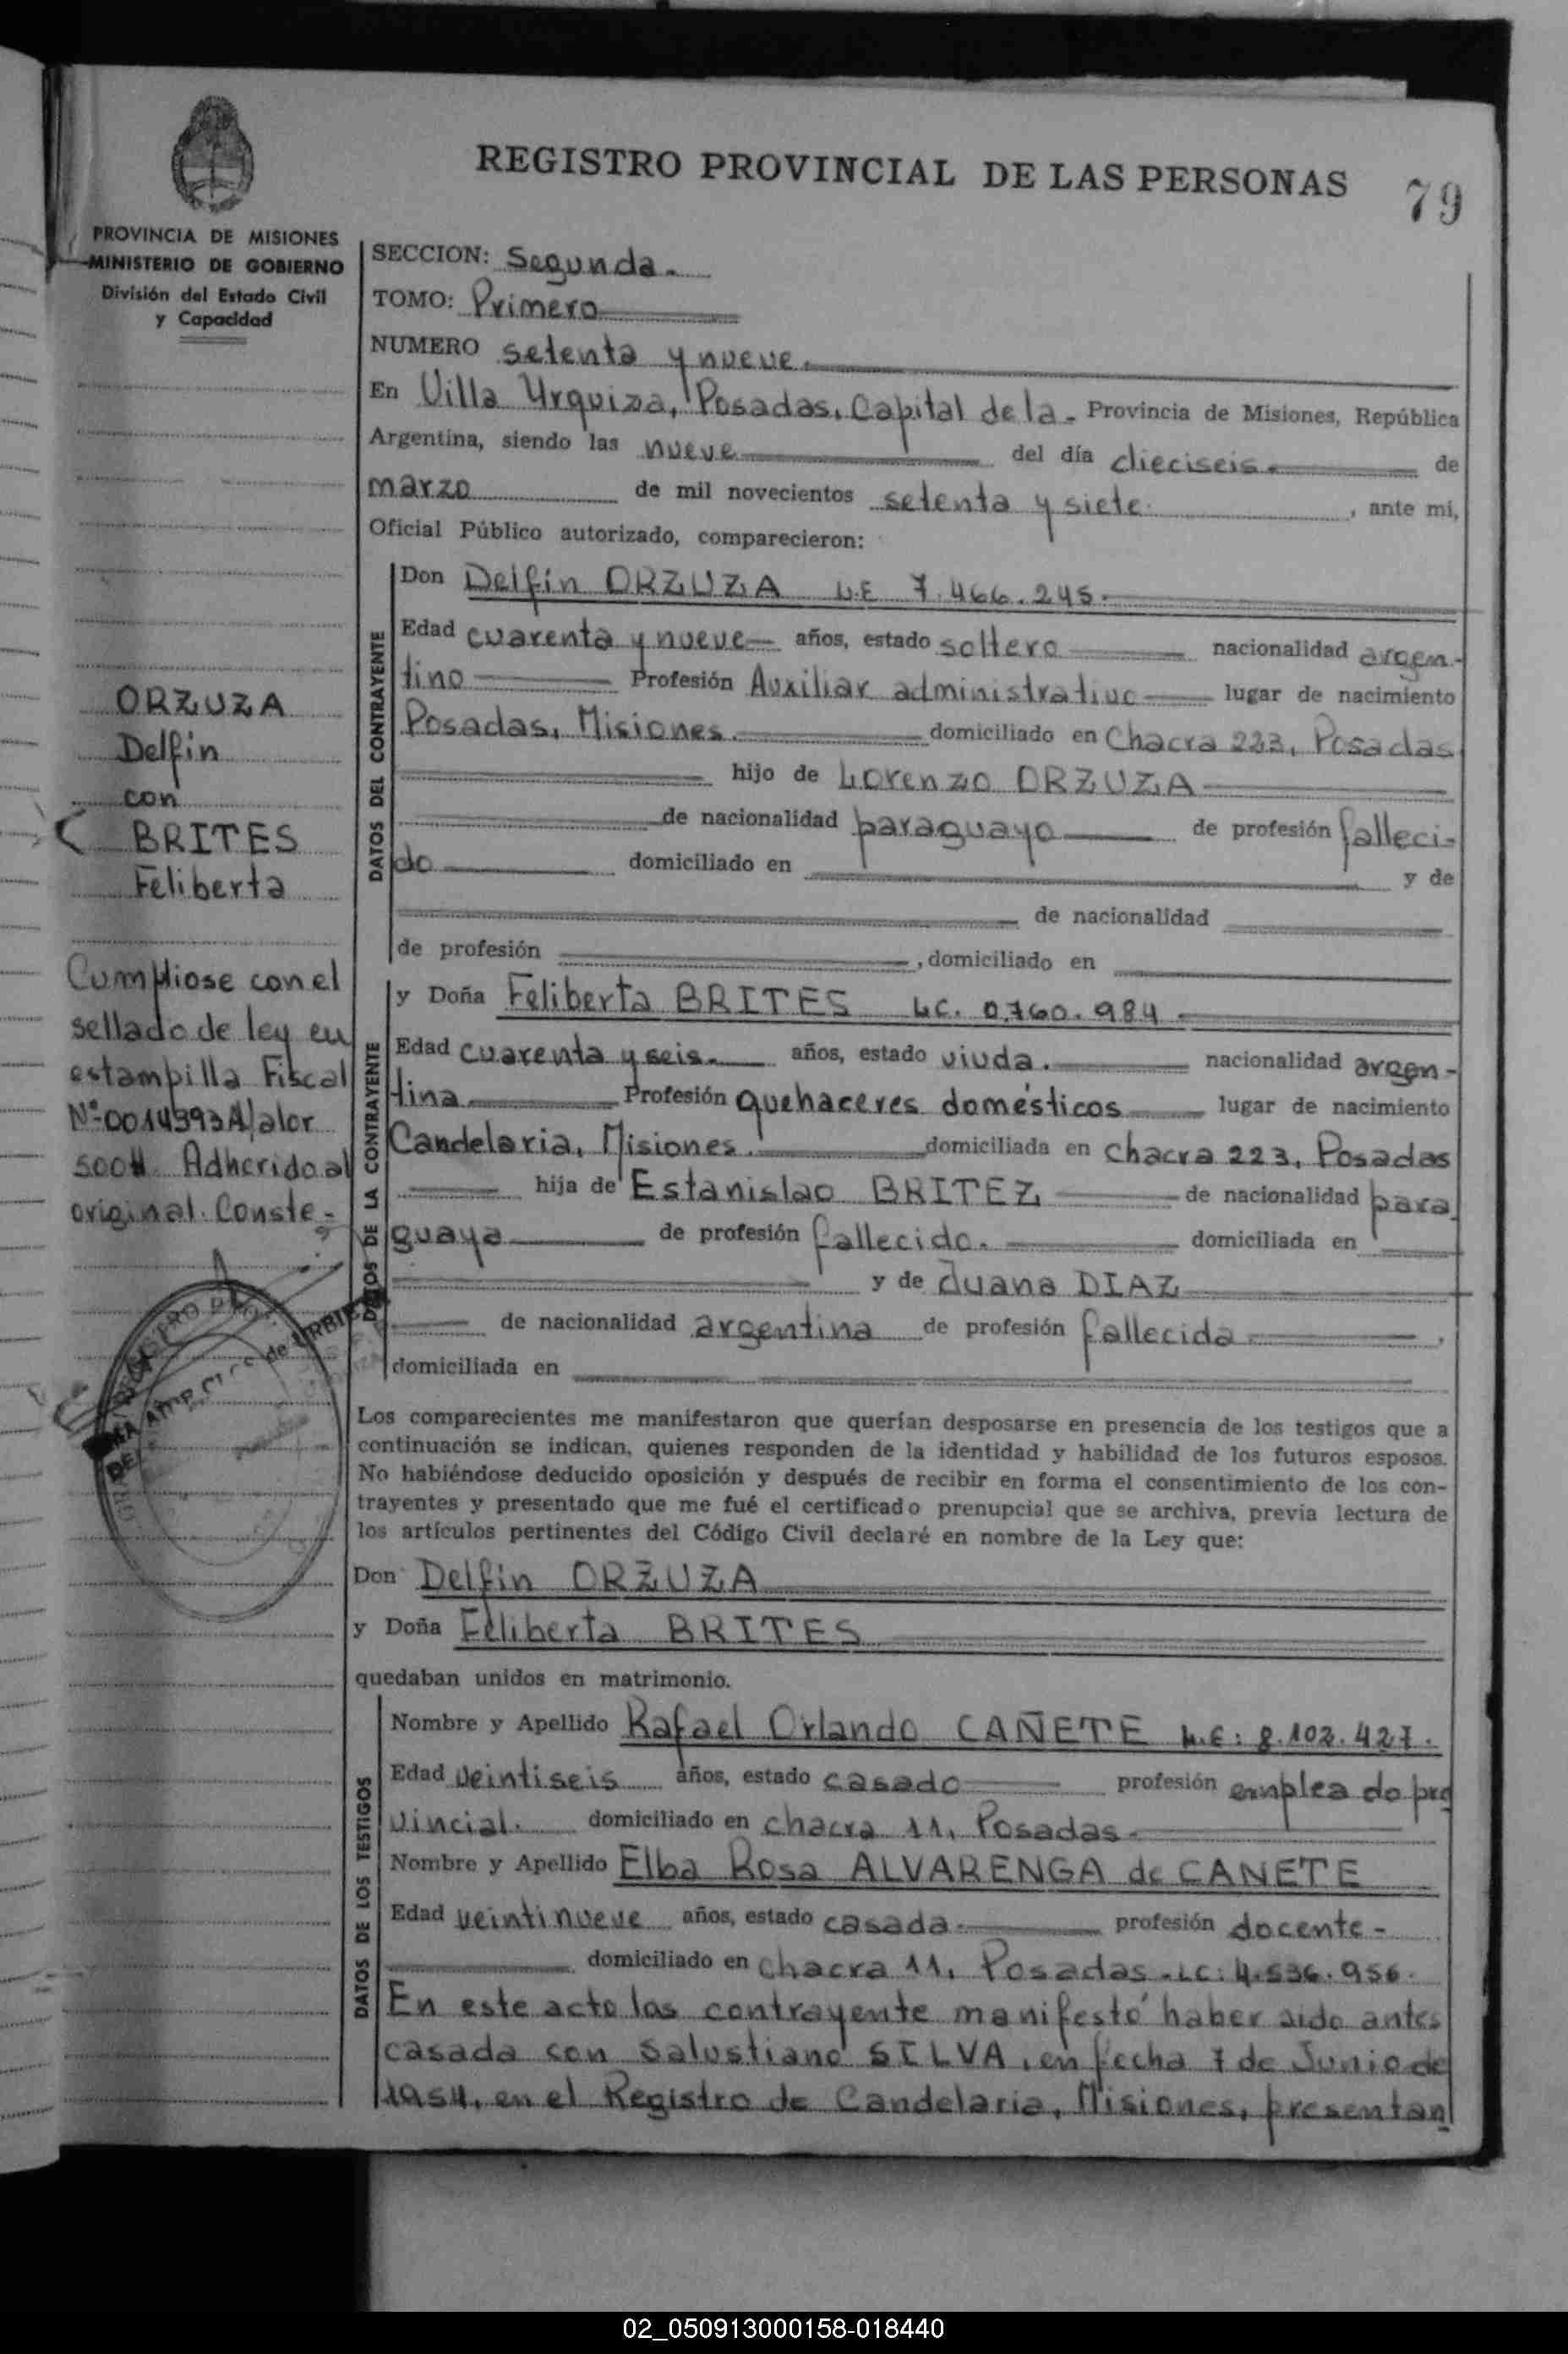 REGISTRO PROVINCIAL DE LAS PERSONAS 79
PROVINCIA DE MISIONES
MINISTERIO DE GOBIERNO
División del Estado Civil
y Capacidad
ORZUZA
Delfin
con
BRITES
Feliberta
Cumpliose con el
sellado de ley en
estampilla Fiscal
Nº 0014393A/alor
500 Adherido al
original. Conste-
SECCION: Segunda.
TOMO: Primero
NUMERO setenta y nueve.
En Villa Urquiza, Posadas, Capital de la- Provincia de Misiones, República
Argentina, siendo las nueve del día dieciseis. de
marzo de mil novecientos setenta y siete. , ante mi,
Oficial Público autorizado, comparecieron:
DATOS DEL CONTRAYENTE
Don Delfín ORZUZA L.E 7.466.245.
Edad cuarenta y nueve años, estado soltero nacionalidad argen-
tino Profesión Auxiliar administrativo lugar de nacimiento
Posadas, Misiones. domiciliado en Chacra 223, Posadas
hijo de Lorenzo ORZUZA
de nacionalidad paraguayo de profesión falleci-
do domiciliado en y de
de nacionalidad
de profesión , domiciliado en
DATOS DE LA CONTRAYENTE
y Doña Feliberta BRITES LC. 0.760.984
Edad cuarenta y seis. años, estado viuda. nacionalidad argen-
tina Profesión quehaceres domésticos lugar de nacimiento
Candelaria, Misiones. domiciliada en chacra 223, Posadas
hija de Estanislao BRITEZ de nacionalidad para
guaya de profesión fallecido. domiciliada en
y de Juana DIAZ
de nacionalidad argentina de profesión fallecida
domiciliada en
Los comparecientes me manifestaron que querían desposarse en presencia de los testigos que a
continuación se indican, quienes responden de la identidad y habilidad de los futuros esposos.
No habiéndose deducido oposición y después de recibir en forma el consentimiento de los con-
trayentes y presentado que me fué el certificado prenupcial que se archiva, previa lectura de
los artículos pertinentes del Código Civil declaré en nombre de la Ley que:
Don Delfin ORZUZA
y Doña Feliberta BRITES
quedaban unidos en matrimonio.
DATOS DE LOS TESTIGOS
Nombre y Apellido Rafael Orlando CAÑETE L.E: 8.102.427.
Edad veintiseis años, estado casado profesión emplea do pro
vincial. domiciliado en chacra 11, Posadas-
Nombre y Apellido Elba Rosa ALVARENGA de CANETE
Edad veintinueve años, estado casada. profesión docente-
domiciliado en chacra 11, Posadas-LC: 4.536.956.
En este acto las contrayente manifestó haber sido antes
casada con Salustiano SILVA, en fecha 7 de Junio de
1954, en el Registro de Candelaria, Misiones, presentan
02_050913000158-018440